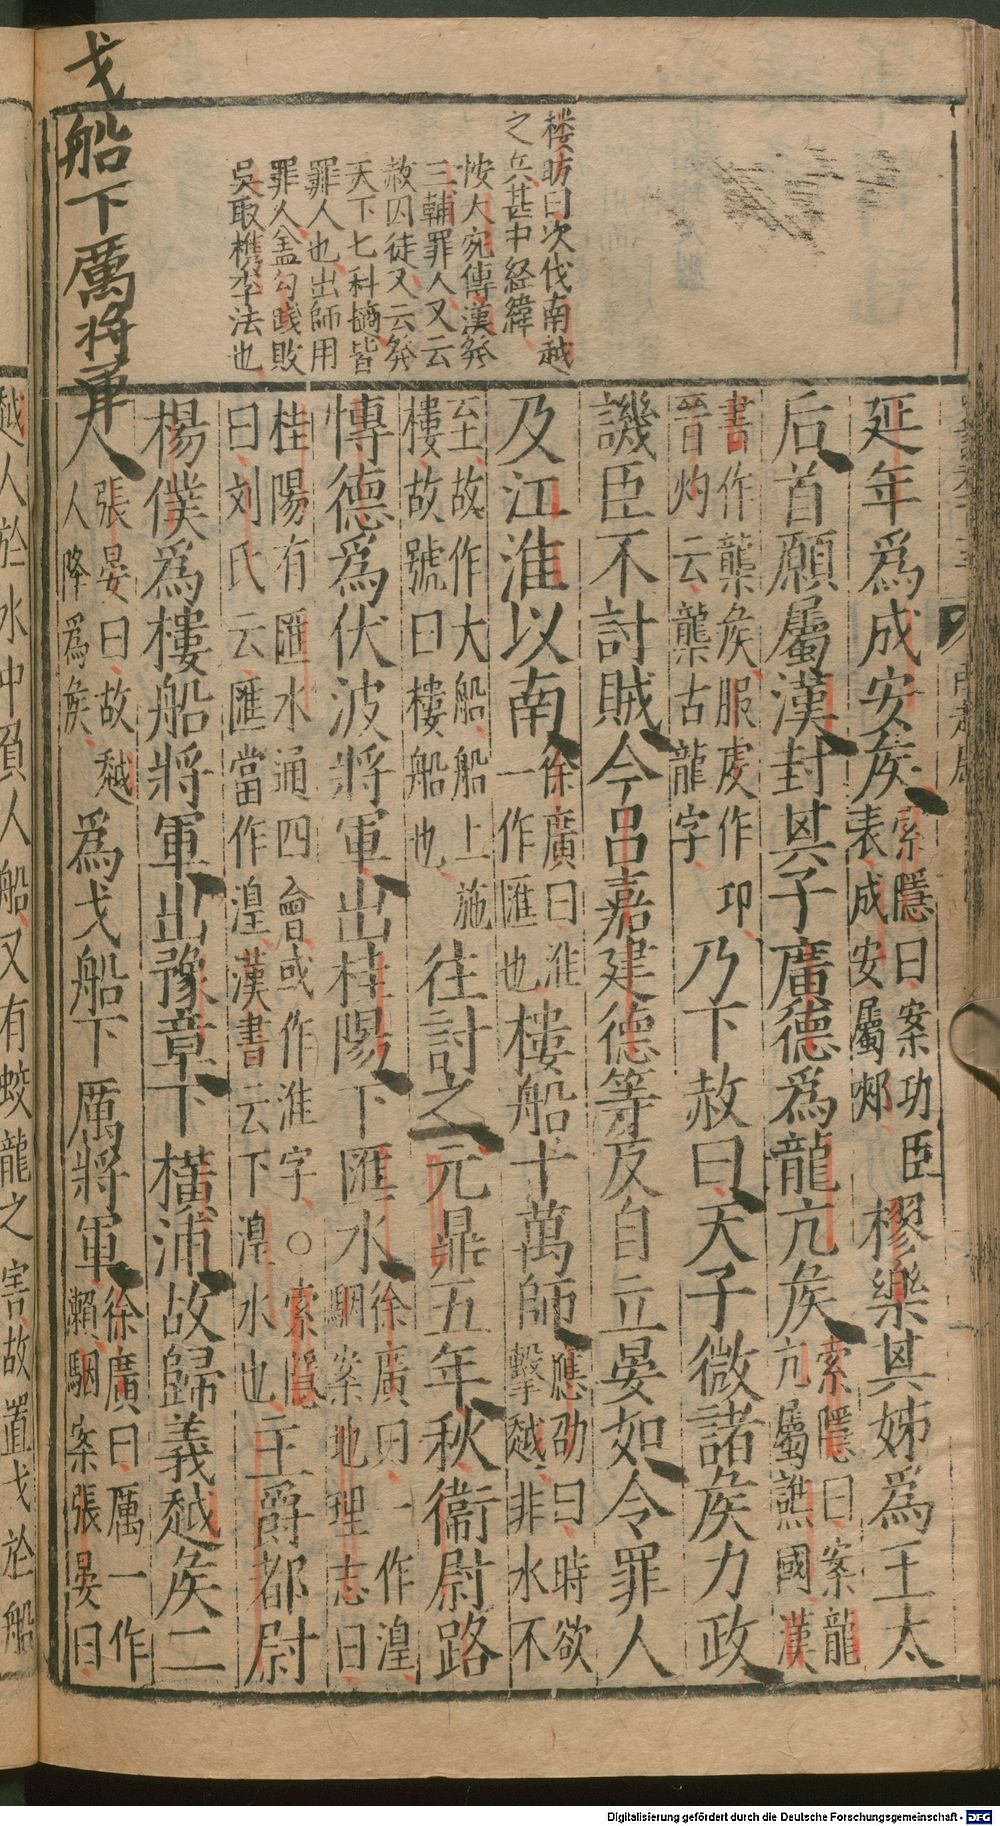 戈船下厲將軍
樓昉曰次伐南越
之兵甚中経緯
按大宛傳漢発
三輔罪人又云
赦囚徒又云発
天下七科擿皆
罪人也出師用
罪人盖勾践敗
吳取檇李法也
延年為成安矦索隱曰案功臣
表成安屬郟樛樂其姊為王太
后首願屬漢封其子廣德為龍亢矦索隱曰案龍
亢屬譙國漢
書作龒矦服䖍作卭
晉灼云龒古龍字乃下赦曰天子微諸矦力政
譏臣不討賊今呂嘉建德等反自立晏如令罪人
及江淮以南徐廣曰淮
一作匯也樓船十萬師應劭曰時欲
擊越非水不
至故作大船船上施
樓故號曰樓船也往討之元鼎五年秋衞尉路
愽德為伏波將軍出桂陽下匯水徐廣曰一作湟
駰案地理志曰
桂陽有匯水通四會或作淮字○索隱
曰刘氏云匯當作湟漢書云下湟水也主爵都尉
楊僕為樓船將軍出豫章下橫浦故歸義越矦二
人張晏曰故越
人降為矦為戈船下厲將軍徐廣曰厲一作
瀨駰案張晏曰
越人於水中負人船又有蛟龍之害故置戈於船
Digitalisierung gefördert durch die Deutsche Forschungsgemeinschaft - DFG